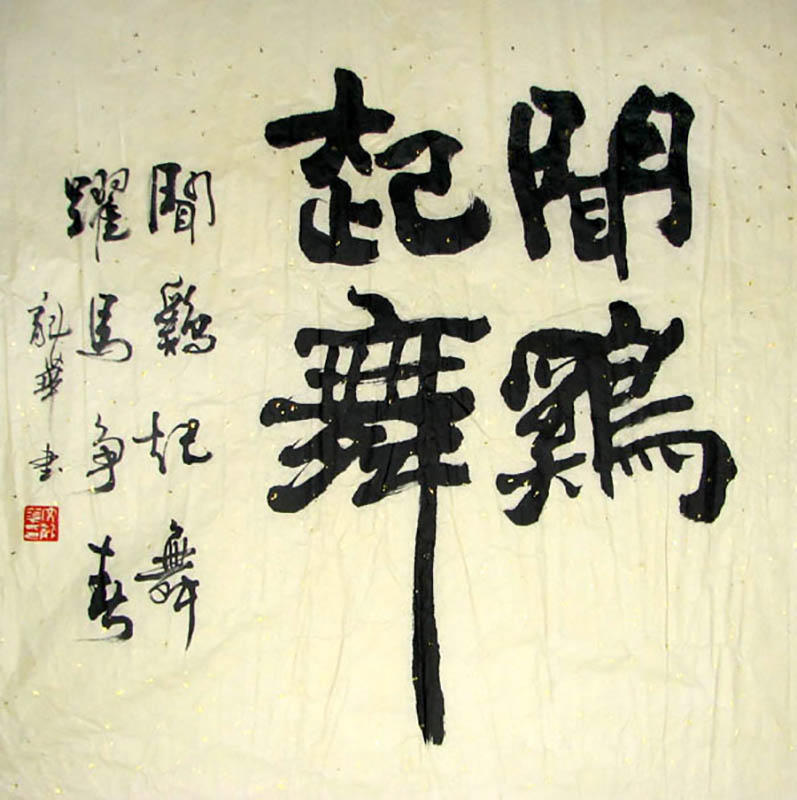 聞鷄
起舞
聞鷄起舞
躍馬争春
華書